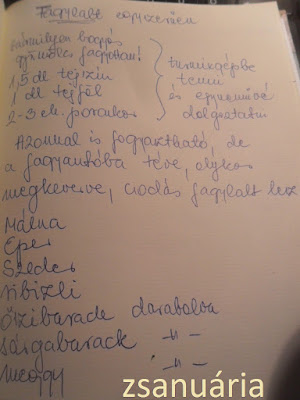 Fagylalt egyszerűen
bármilyen bogyós
gyümölcs fagyottan!
1,5 dl tejszín
1 dl tejföl
2-3 ek. porcukor
turmixgépbe
tenni
és egyneművé
dolgoztatni
Azonnal is fogyasztható, de
a fagyasztóba téve, olykor
megkeverve, csodás fagylalt lesz
Málna
Eper
Szeder
Ribizli
Őszibarack darabolva
Sárgabarack -"-
Meggy -"-
zsanuária